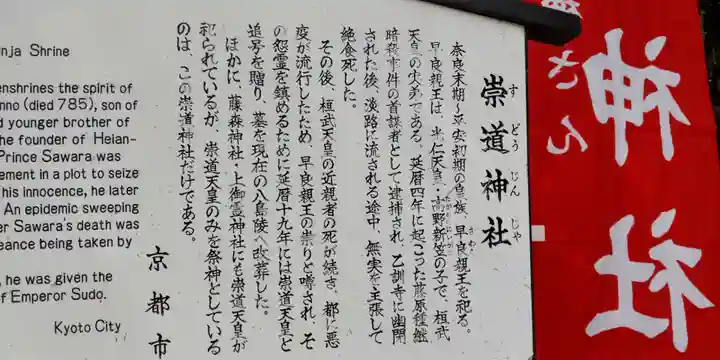 崇道神社
すどうじんじゃ
奈良末期〜平安初期の皇族、早良親王を祀る。
さわら
早良親王は、光仁天皇・高野新笠の子で、桓武
天皇の実弟である。延暦四年に起こった藤原種継
暗殺事件の首謀者として逮捕され、乙訓寺に幽閉
された後、淡路に流される途中、無実を主張して
絶食死した。
その後、桓武天皇の近親者の死が続き、都に悪
疫が流行したため、早良親王の祟りと噂され、そ
の怨霊を鎮めるために延暦十九年には崇道天皇と
追号を贈り、墓を現在の八島陵へ改葬した。
ほかに、藤森神社・上御霊神社にも崇道天皇が
祀られているが、崇道天皇のみを祭神としている
のは、この崇道神社だけである。
京都市
nja Shrine
enshrines the spirit of
nno (died 785), son of
d younger brother of
the founder of Heian-
Prince Sawara was
ement in a plot to seize
his innocence, he later
An epidemic sweeping
er Sawara's death was
eance being taken by
, he was given the
f Emperor Sudo.
Kyoto City
神社
さん